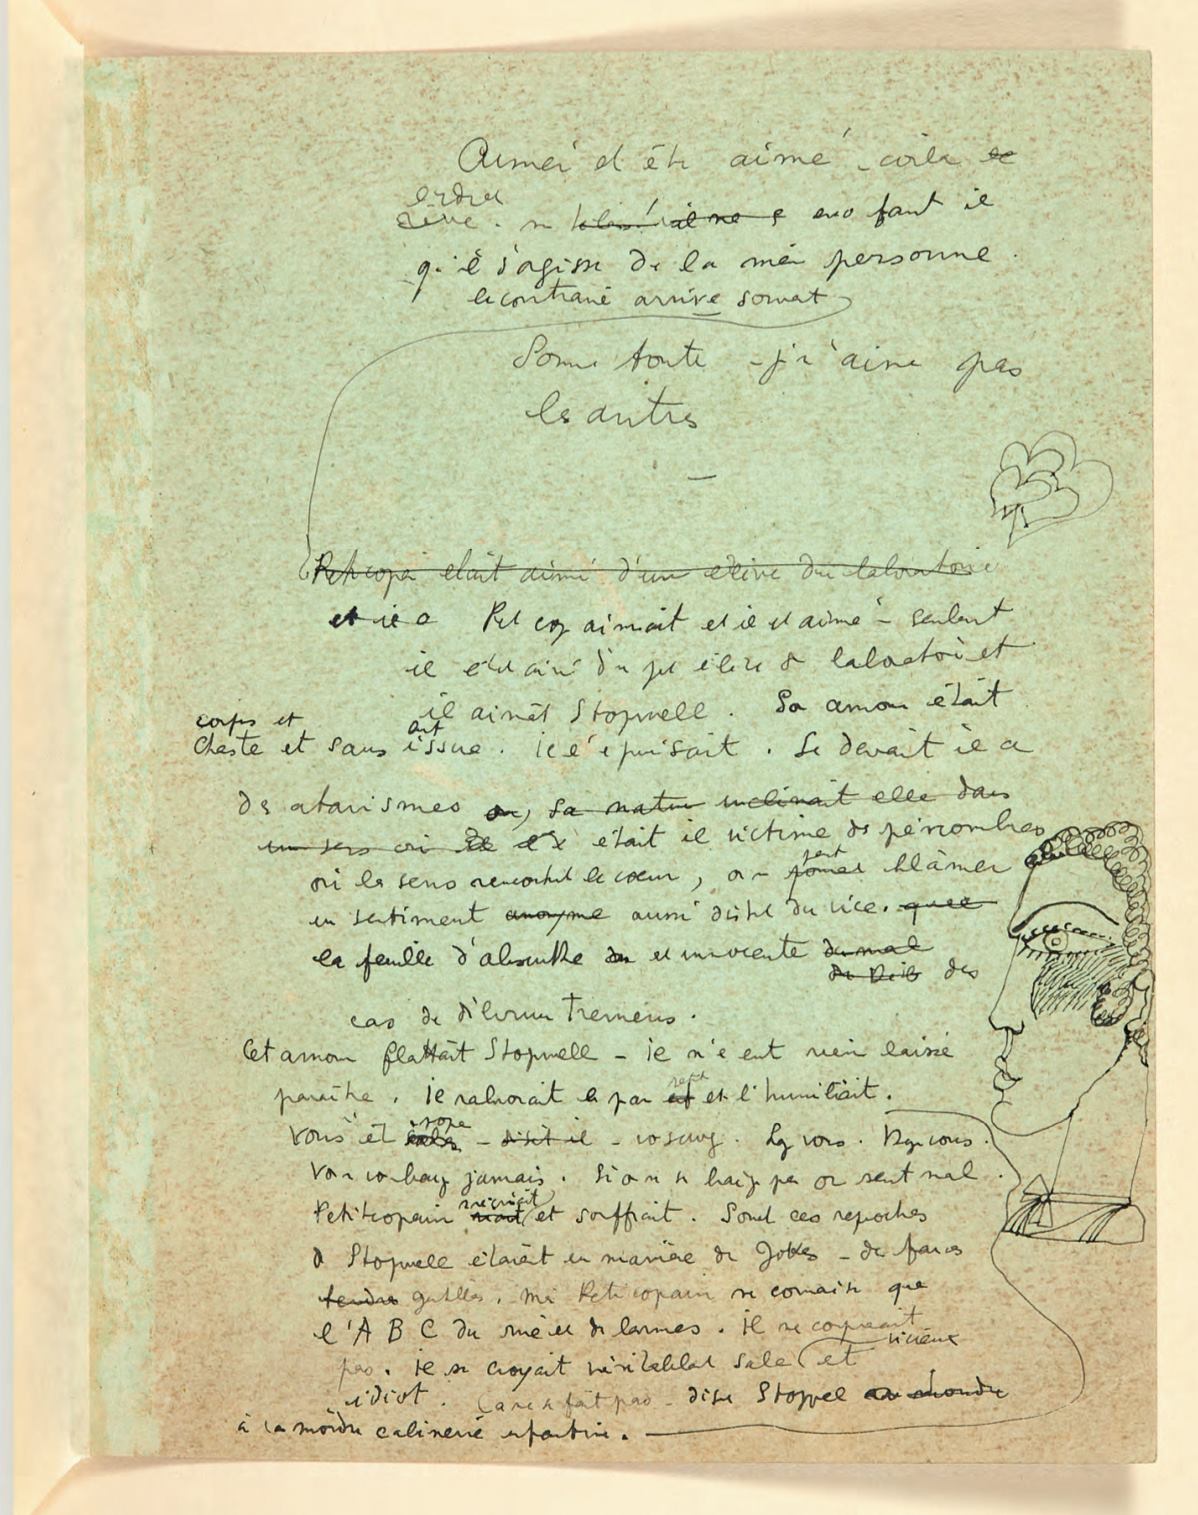 Aimer et être aimé - voilà le
ordre
rêve. encore faut il
qu'il s'agisse de la même personne.
le contraire arrive souvent
Somme toute - je n'aime pas
les autres
—
Petitcopain était aimé d'un élève du laboratoire
et il a Petitcop aimait et il est aimé - seulement
il était aimé d'un élève du laboratoire et
il aimait Stopwell. Son amour était
corps et
chaste et sans issue. il l'épuisait. Le devait il a
des atavismes ou, sa nature inclinait elle dans
un sens ou était il victime des pénombres
où les sens rencontrent le coeur, on peut blâmer
un sentiment anonyme aussi distinct du vice. que
la feuille d'absinthe est innocente du mal
des
cas de délirium Tremens.
Cet amour flattait Stopwell - il n'en eut rien laissé
paraître. il rabrouait et l'humiliait.
Vous êtes - disait il -
jamais. Si on ne bouge pas on sent mal.
Petitcopain et souffrait. Souvent ces reproches
de Stopwell étaient en manière de Jokes - de farces
tendres gentilles. Mais Petitcopain ne connaissait que
l'A B C du rire et des larmes. il ne comprenait
vicieux
pas. il se croyait véritablement sale et
idiot. Ça ne se fait pas - disait Stopwell
à la moindre calinerie enfantine.